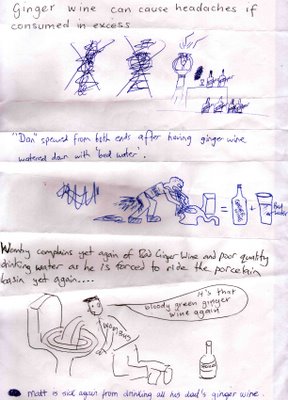 Ginger wine can cause headaches if
consumed in excess
"Dan" spewed from both ends after having ginger wine
watered down with 'bad water'.
Bad
water
Womby complains yet again of Bad Ginger Wine and poor quality
drinking water as he is forced to ride the porcelain
basin yet again....
it's that
bloody green ginger
wine again
Matt is sick again from drinking all his dad's ginger wine.